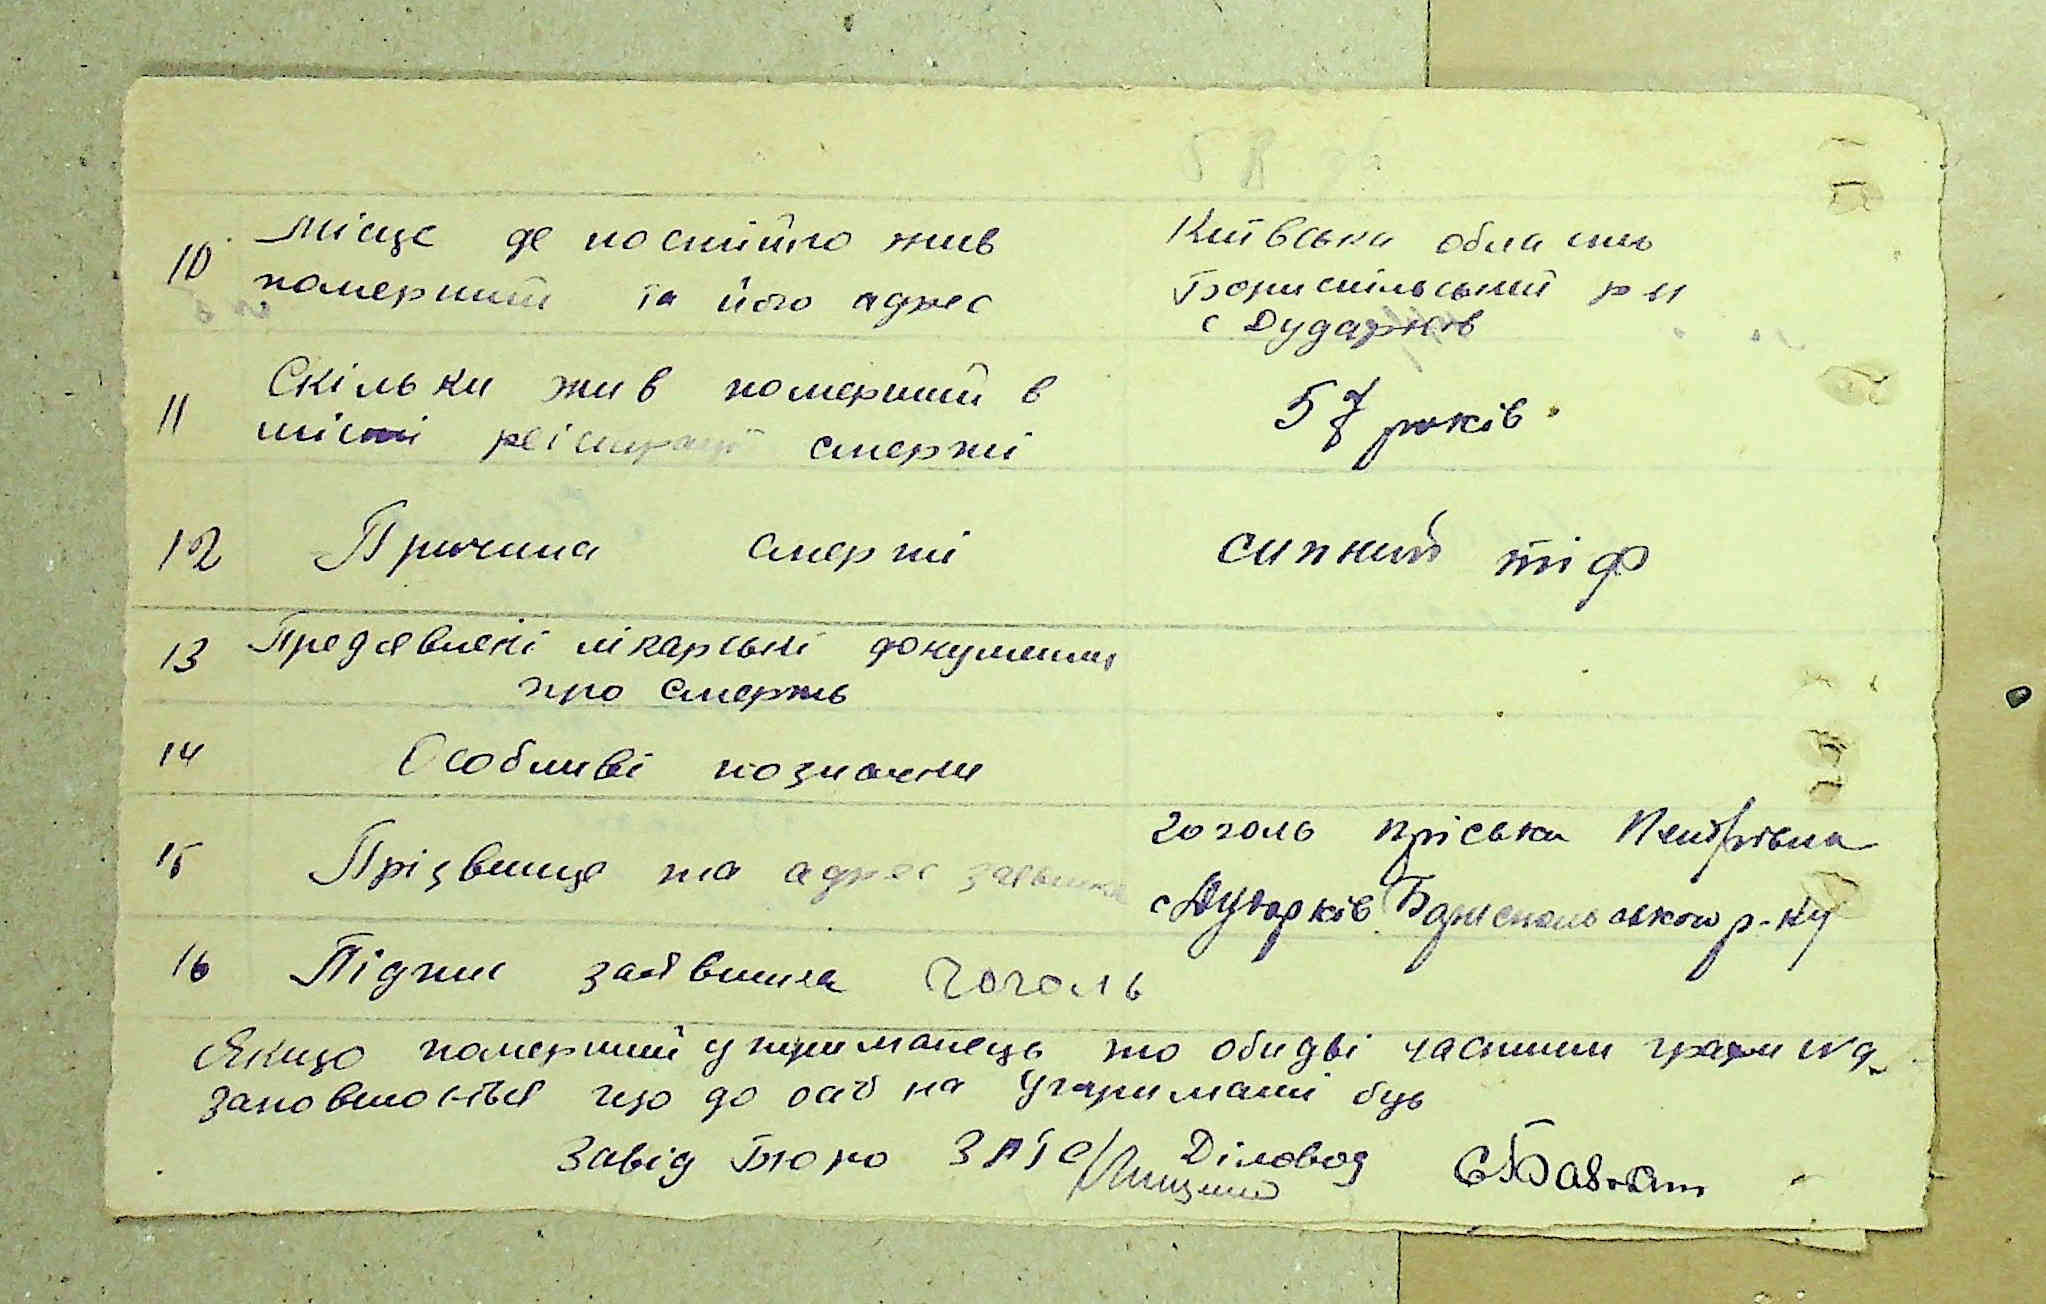 10 Місце де постійно жив Київська область
померший та його адрес Бориспільський р н
с Дударків
11 Скільки жив померший в 57 років
місті реістрації смерті
12 Причина смерті сипний тіф
13 Предявлені лікарські документи
про смерть
14 Особливі позначки
15 Прізвище та адрес заявника Гоголь Пріська Петрівна
с Дударків Бориспольського р-ну
16 Підпис заявника Гоголь
Якщо померший утриманець то обидві частини графи №9
заповнюються що до осіб на утриманні був
Завід Бюро ЗАГС Діловод